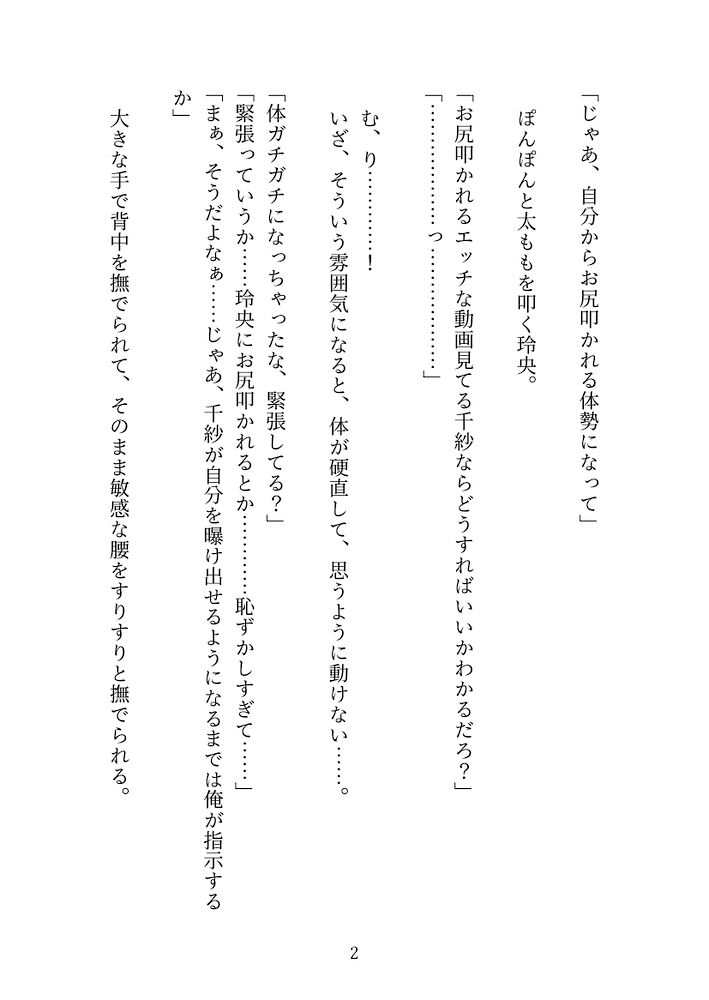 「じゃあ、自分からお尻叩かれる体勢になって」
ぽんぽんと太ももを叩く玲央。
「お尻叩かれるエッチな動画見てる千紗ならどうすればいいかわかるだろ？」
「………………っ………………」
む、り…………！
いざ、そういう雰囲気になると、体が硬直して、思うように動けない……。
「体ガチガチになっちゃったな、緊張してる？」
「緊張っていうか……玲央にお尻叩かれるとか…………恥ずかしすぎて……」
「まぁ、そうだよなぁ……じゃあ、千紗が自分を曝け出せるようになるまでは俺が指示する
か」
大きな手で背中を撫でられて、そのまま敏感な腰をすりすりと撫でられる。
2